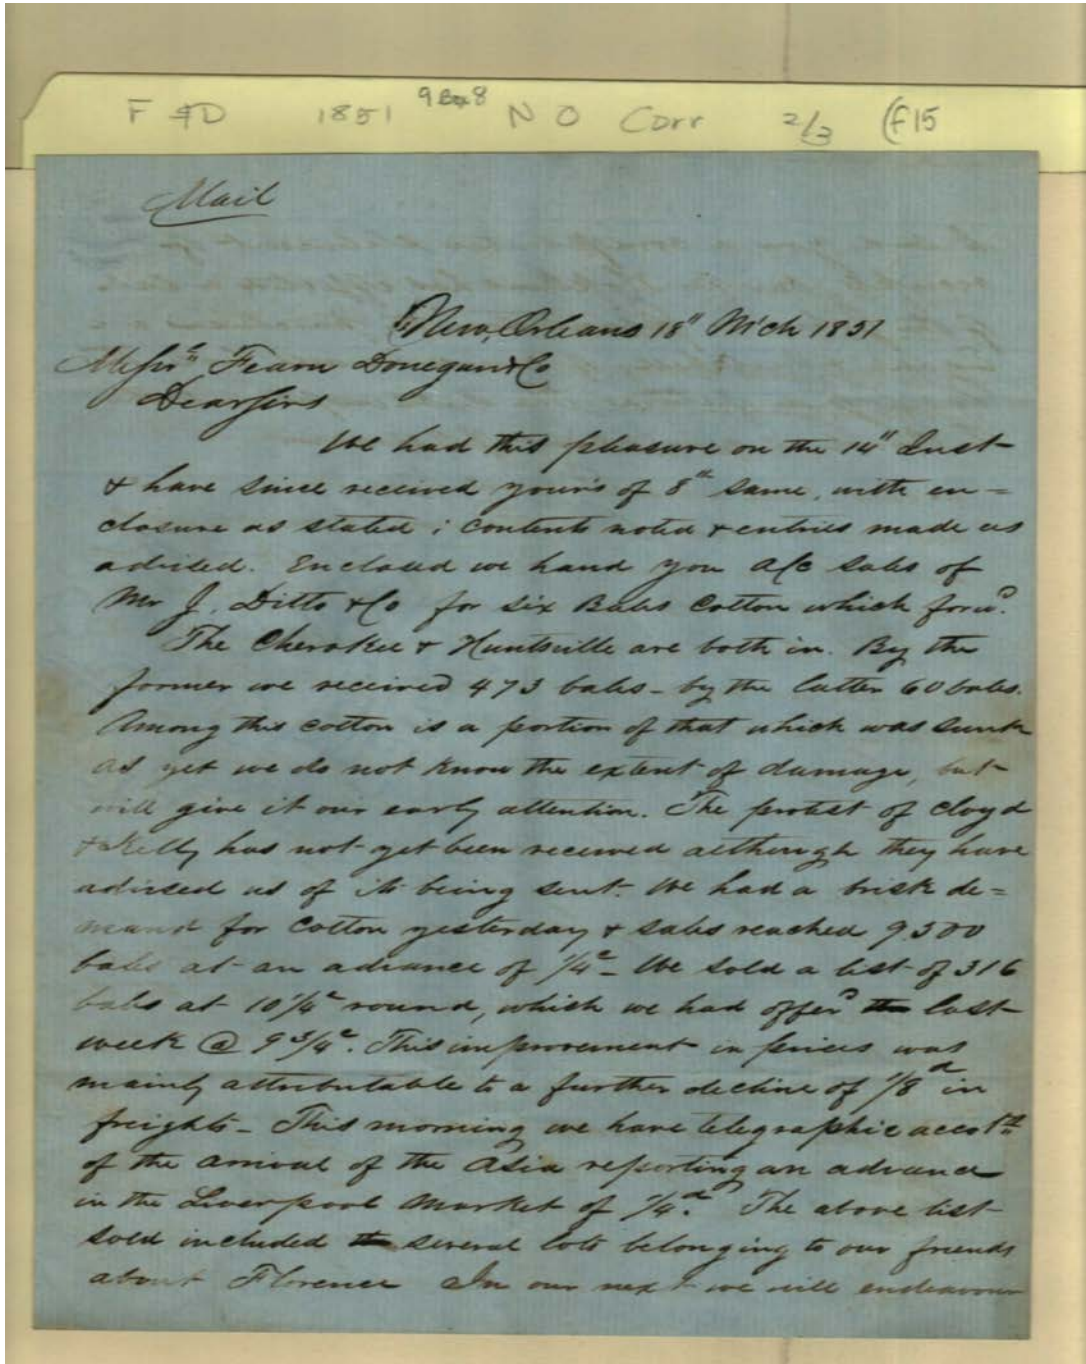 F & D 1851 9 Box 8 N O Corr 2/3 (F15
Mail
New Orleans 18" Mch 1851
Messrs Fearn Donegan & Co
Dear Sirs
We had this pleasure on the 14" Inst
& have since received yours of 8th same, with en=
closure as stated; contents noted & entries made as
advised. Enclosed we hand you a/c sales of
Mr J. Ditto & Co for six Bales Cotton which forwd.
The Cherokee & Huntsville are both in. By the
former we received 473 bales - by the latter 60 bales.
Among this cotton is a portion of that which was sunk
as yet we do not know the extent of damage, but
will give it our early attention. The protest of Cloyd
& Kelly has not yet been received although they have
advised us of its being sent. We had a brisk de=
mand for Cotton yesterday & sales reached 9500
bales at an advance of 1/4c - We sold a list of 316
bales at 10 1/4c round, which we had offerd last
week @ 9 3/4c. This improvement in prices was
mainly attributable to a further decline of 1/8d in
freights - This morning we have telegraphic accots
of the arrival of the Asia reporting an advance
in the Liverpool Market of 1/4d. The above list
sold included several lots belonging to our friends
about Florence In our next we will endeavour